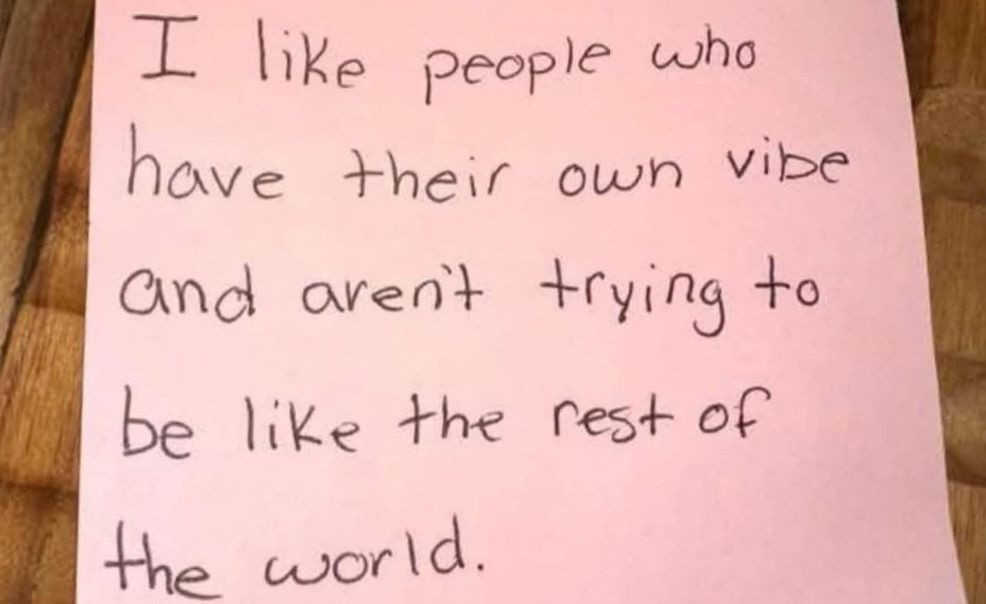 I like people who
have their own vibe
and aren't trying to
be like the rest of
the world.